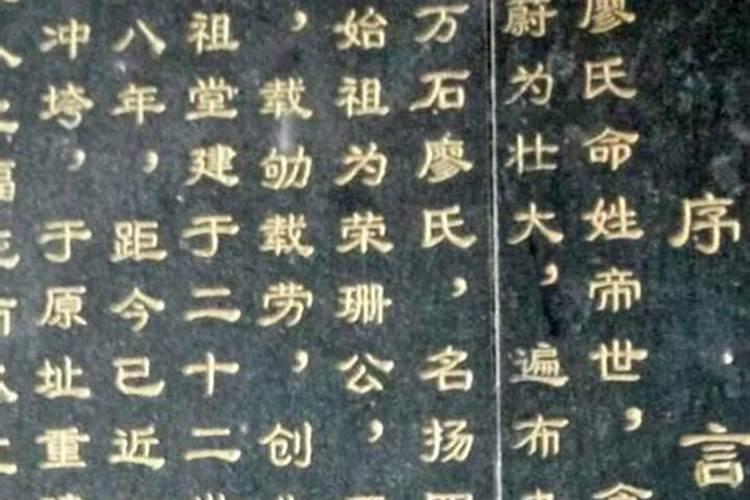 序言
廖氏命姓帝世，
蔚为壮大，遍布
万石廖氏，名扬
始祖为荣珊公，
，载劬载劳，创
祖堂建于二十二
八年，距今已近
冲垮，于原址重